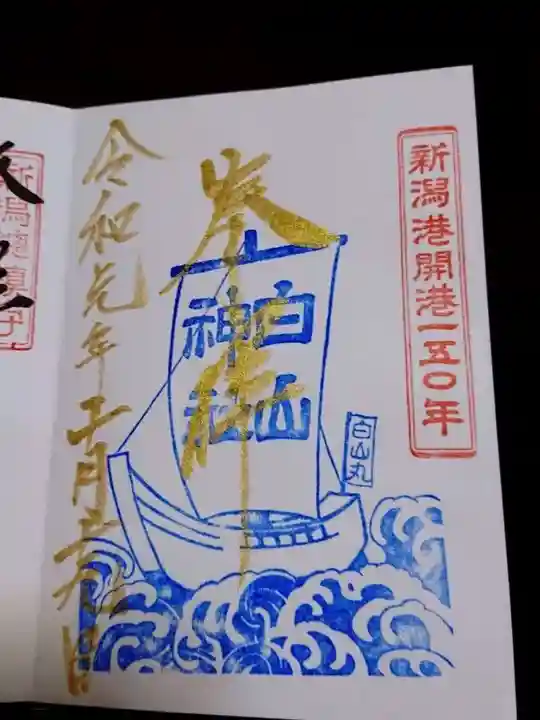 新潟港開港一五〇年
奉拝
白山
神社
白山丸
令和元年十一月二十九日